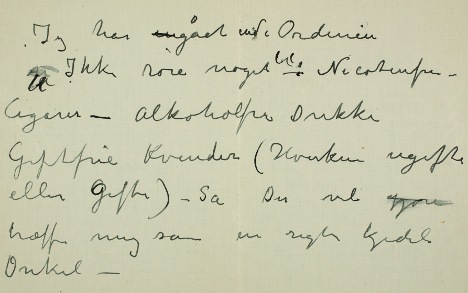 Jeg har gået ind i Ordenen
Ikke røre noget Nicotinfri
Cigarer — Alkoholfri Drikke
Giftfrie Kvinder (Hverken ugifte
eller Gifte) — Så Du vil
træffe mig som en rigtig kjedelig
Onkel —